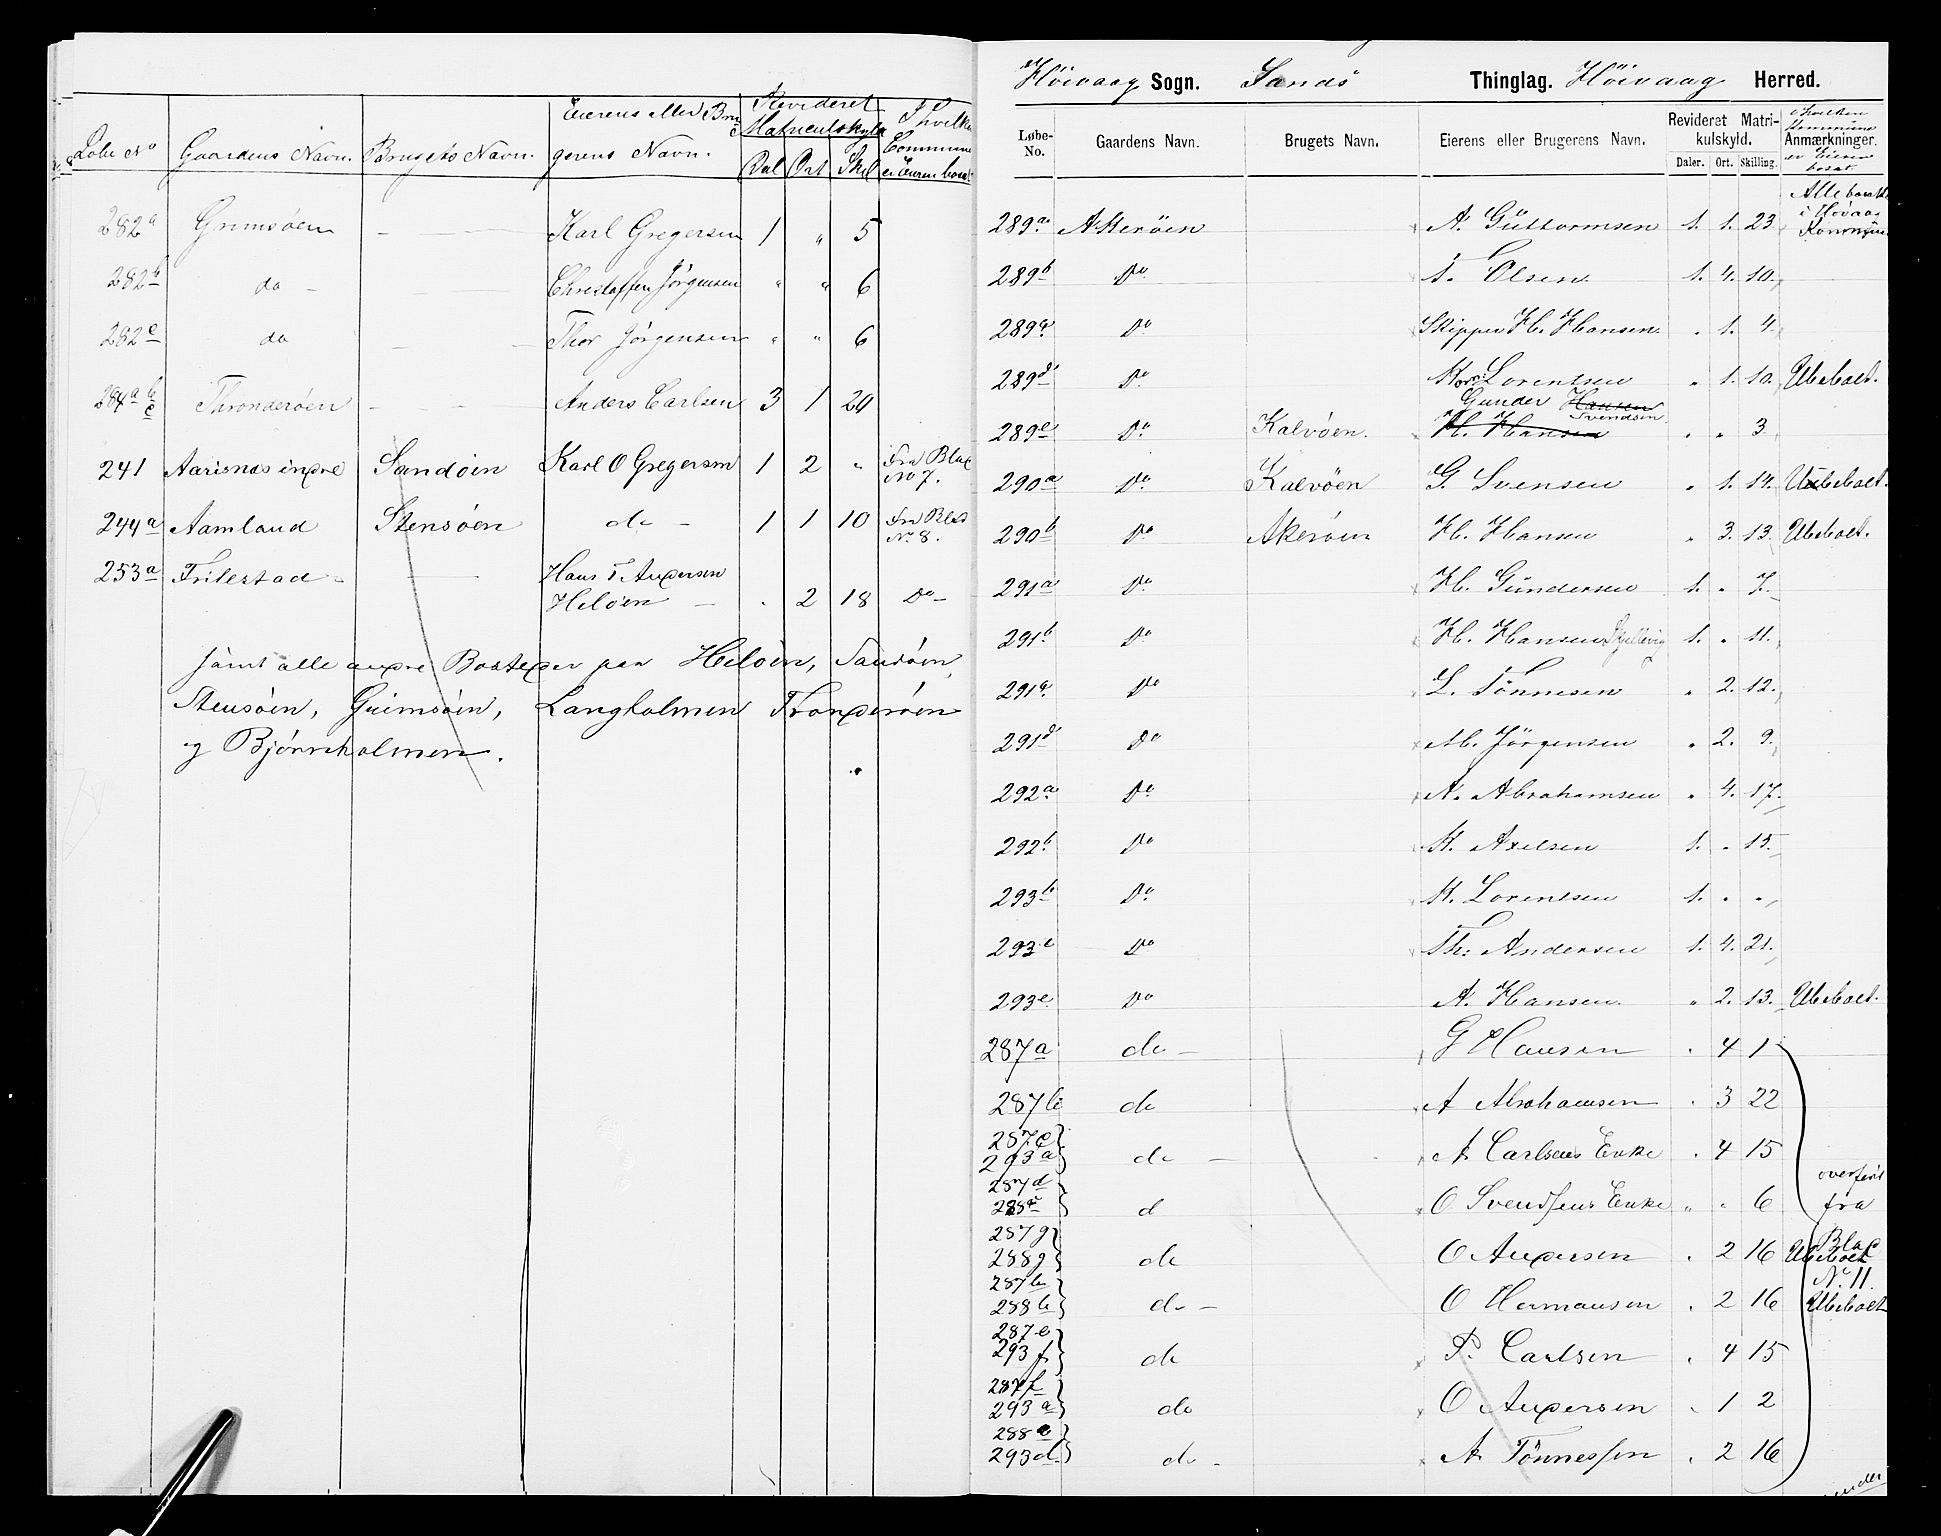 Løbe No Gaardens Navn. Brugets Navn. Eierens eller Bru-gerens Navn. Revideret Matriculskyld Dal Ort Skil I hvilken Commune er Eieren bosat
282a Grimsøen — Karl Gregersen 1 " 5
282b do — Christoffer Jörgensen " " 6
282c do — Thor Jörgensen " " 6
284a b c Thronderöen — Anders Carlsen 3 1 20
241 Aarisnæs indre Sandöen Karl O Gregersen 1 2 " Fra Blad No 7.
244a Aamland Stensöen do — 1 1 10 Fra Blad No 8.
253a Trilestad — Hans T Andersen
Helöen — . 2 18 Do —
samt alle andre Bosteder paa Helöen, Sandöen,
Stensöen, Grimsöen, Langholmen Tronderöen
og Bjørneholmen.
Höivaag Sogn. Sands Thinglag. Höivaag Herred.
Løbe-No. Gaardens Navn. Brugets Navn. Eierens eller Brugerens Navn. Revideret Matri-kulskyld. Daler. Ort. Skilling. Anmærkninger.
i hvilken Kommune er Eieren bosat.
Alle bosatte i Høvaag Kommune
289a Akeröen A. Güttormsen 1. 1. 23
289b Do T. Olsen 1. 4. 10.
289c Do Skipper H. Hansen . 1. 4
289d Do Korn: Lorentsen . 1. 10. Ubeboet.
Gunder Hansen Svendsen
289e Do Kalvöen. H. Hansen " " 3
290a Do Kalvöen G. Svensen " 1. 14. Ubeboet.
290b Do Akeröen H. Hansen " 3. 13. Ubeboet.
291a Do H. Gündersen 1. " 7.
291b Do H. Hansen Skjellevig 1. " 11.
291c Do L. Tönnesen " 2. 12.
291d Do M. Jörgensen " 2. 9.
292a Do A. Abrahamsen " 4. 17.
292b Do K. Axelsen 1. " 15.
293b Do K. Lorentsen 1. " "
293c Do Th: Andersen 1. 4. 21.
293e Do A. Hansen " 2. 13. Ubeboet.
287a do — G Hansen . 4 1
287b do A Abrahamsen . 3 22
287c
293a do — A Carlsens Enke . 4 15
287d
288a d O Svendsens Enke " " 6 overført fra
287g
288g do O Andersen . 2 16 Blad Ubeboet
287h
288b do — O Hermansen . 2 16 No 11. Ubeboet
287e
293f do P. Carlsen . 4 15
287f
293a do O Andersen . 1 2
288e
293d do — A Tönnessen . 2 16